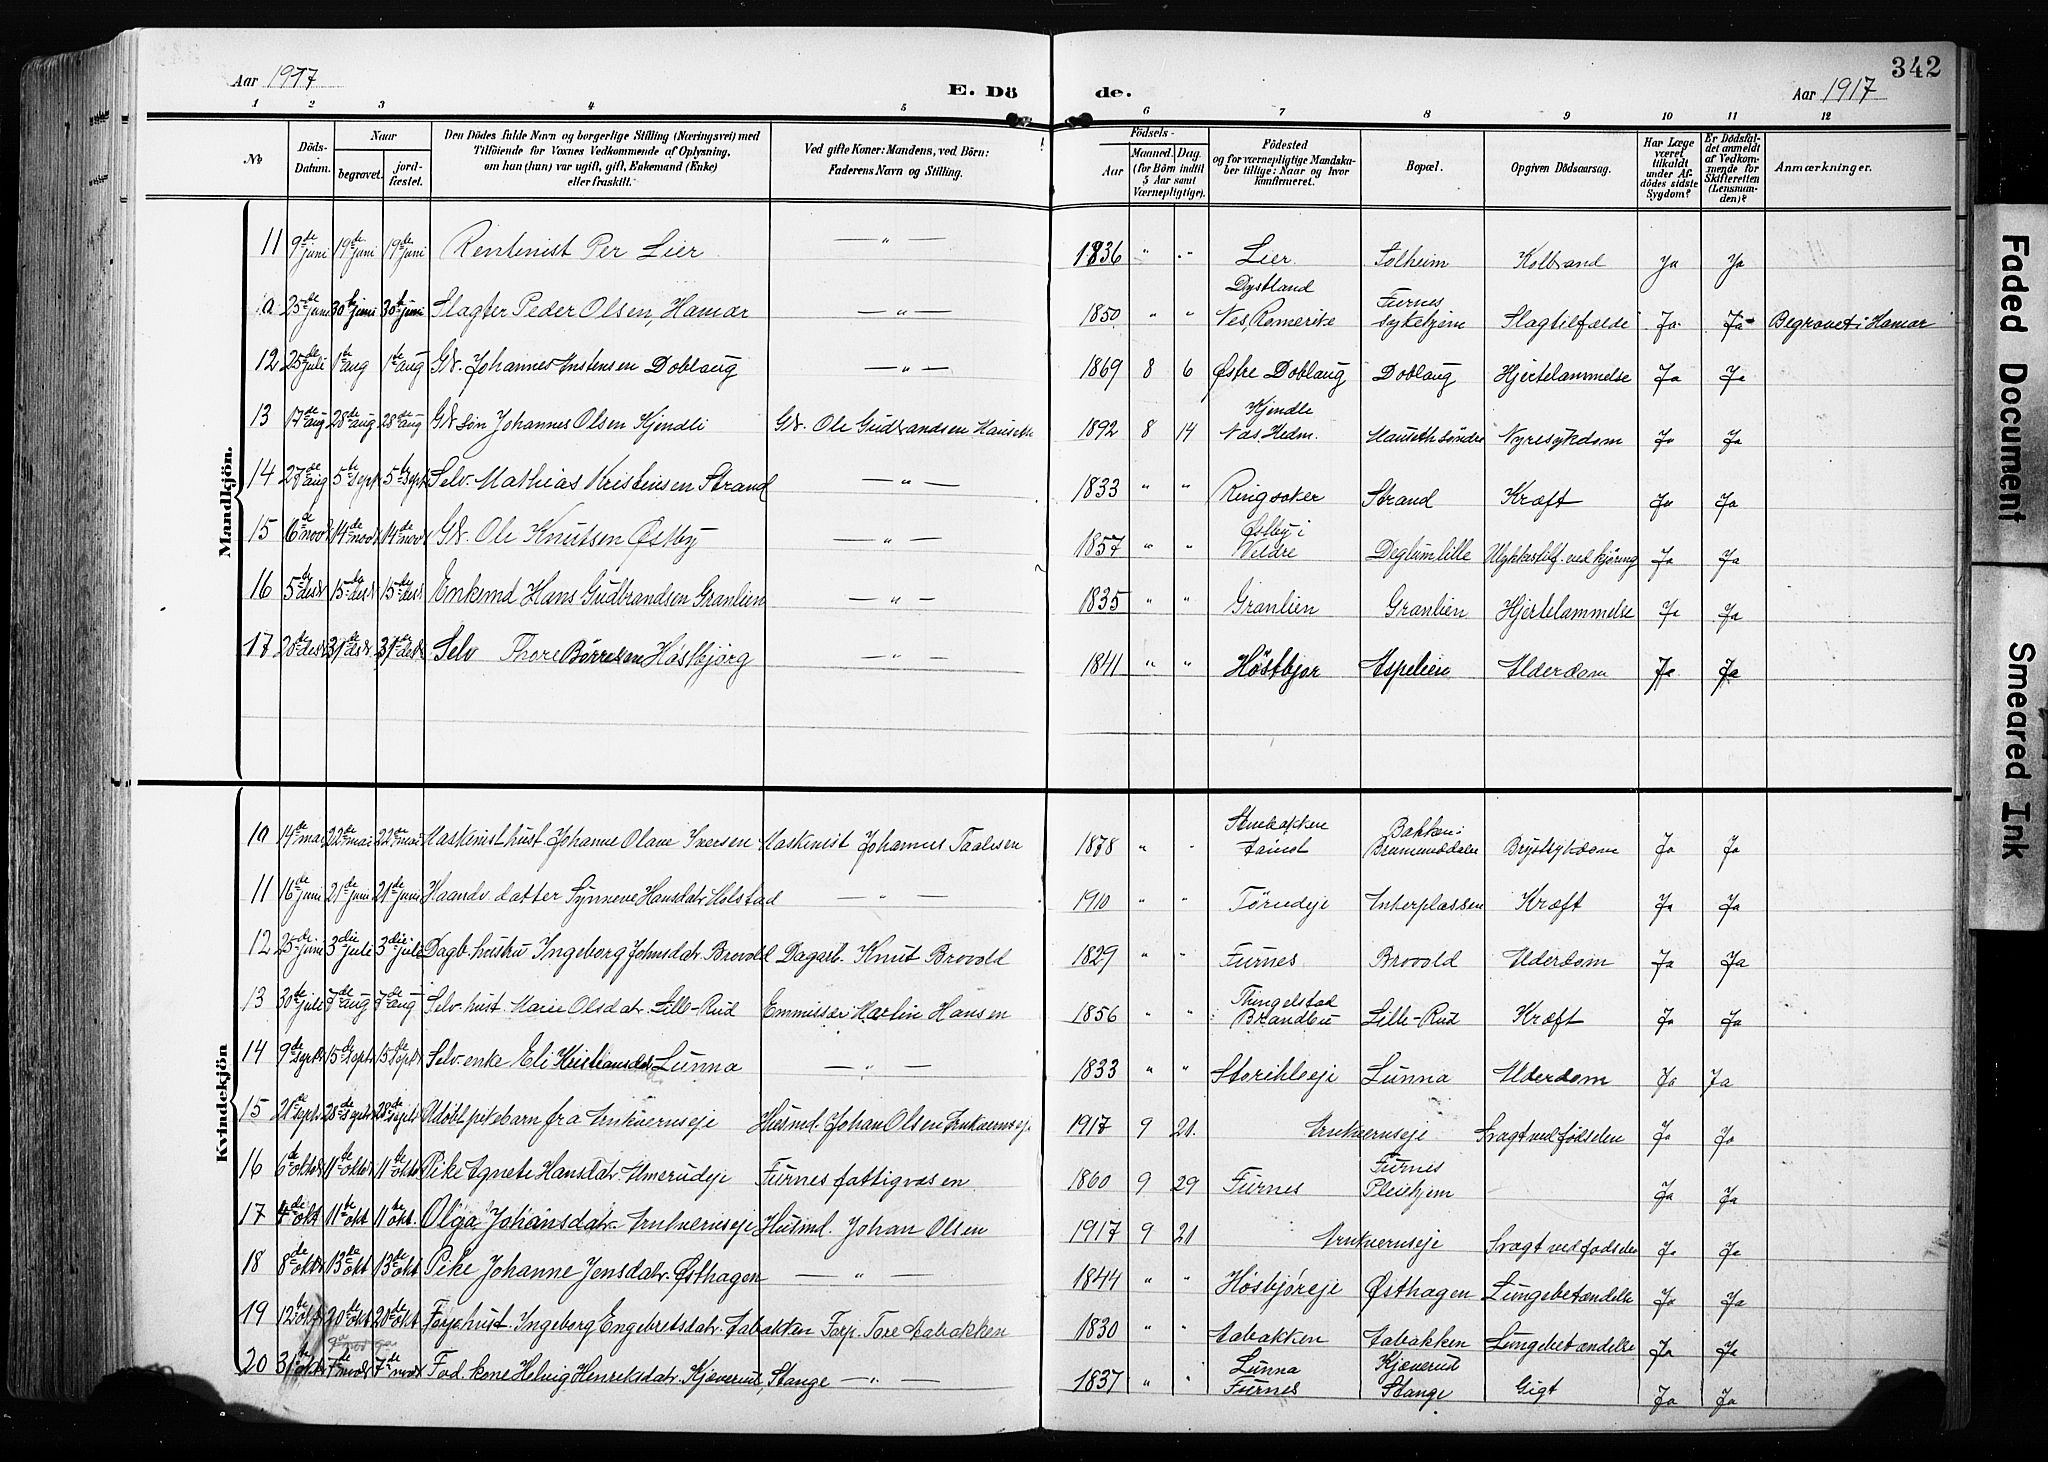 342
Aar 1917
E. Dö de.
Aar 1917
1 2 3 4 5 6 7 8 9 10 11 12
No
Döds-Datum.
Naar
begravet.
jord-fæstet.
Den Dödes fulde Navn og borgerlige Stilling (Næringsvei) med
Tilföiende for Voxnes Vedkommende af Oplysning,
om han (hun) var ugift, gift, Enkemand (Enke)
eller fraskilt.
Ved gifte Koner: Mandens, ved Börn:
Faderens Navn og Stilling.
Födsels-
Aar
Maaned. Dag.
(for Börn indtil
5 Aar samt
Værnepligtige).
Födested
og for værnepligtige Mandska-
ber tillige: Naar og hvor
konfirmeret.
Bopæl.
Opgiven Dödsaarsag.
Har Læge
været
tilkaldt
under Af-
dödes sidste
Sygdom?
Er Dödsfal-
det anmeldt
af Vedkom-
mende for
Skifteretten
(Lensman-
den)?
Anmærkninger.
Mandkjön.
11 9de juni 19de juni 19de juni Rentenist Per Lier — " — 1836 " " Lier Solheim Kolbrand Ja Ja
a 25de juni 30te juni 30te juni Slagter Peder Olsen, Hamar — " — 1850 " " Dystland Nes, Romerike Furnes sykehjem Slagtilfælde Ja Ja Begravet i Hamar
12 25de juli 1te aug 1te aug Gb. Johannes Austensen Doblaug — " — 1869 8 6 Østre Doblaug Doblaug Hjertelammelse Ja Ja
13 17de aug 28de aug 28de aug Gb. søn Johannes Olsen Kjendli Gb. Ole Gudbrandsen Hauseth 1892 8 14 Kjendle Nas Hedm. Hauseth søndre Nyresykdom Ja Ja
14 27de aug 5te sept 5te sept Selv. Mathias Kristensen Strand — " — 1833 " " Ringsaker Strand Kræft Ja Ja
15 6de nov 14de nov 14de nov Gb. Ole Knutsen Østby — " — 1857 " " Østby i Veldre Deglum lille Ulykkestilf. ved kjøring Ja Ja
16 5te desb 15de desb 15de desb Enkemd Hans Gudbrandsen Granlien — " — 1835 " " Granlien Granlien Hjertelammelse Ja Ja
17 20de desb 31de desb 31de desb Selv Thore Børresen Høsbjørg — " — 1841 " " Høstbjør Aspelien Alderdom Ja Ja
Kvindekjön
10 14de mai 22de mai 22de mai Maskinist hust. Johanne Olave Iversen Maskinist Johannes Taalesen 1878 " " Stenbakken Bakken i Brumunddalen Brystsykdom Ja Ja
11 16de juni 21de juni 21de juni Haandv datter Synnøve Hansdatr Holstad — " — 1910 " " Tørudeje Ankerplassen Kræft Ja Ja
12 25de juni 3die juli 3die juli Dagb. hustru Ingeborg Johnsdatr Brovold Dagarb. Knut Brovold 1829 " " Furnes Brovold Alderdom Ja Ja
13 30te juli 7de aug 7de aug Selv. hust Marie Olsdatr. Lille-Rud Emmissær Martin Hansen 1856 " " Thingelstad Brandbu Lille-Rud Kræft Ja Ja
14 9de sept 15de sept 15de sept Selv. enke Eli Kristiansdatr Lunna — " — 1833 " " Storihleeje Lunna Alderdom Ja Ja
15 21de sept 28de sept 28de sept Udøbt pikebarn fra Arnkverneje Husmd. Johan Olsen Arnkverneje 1917 9 21. Arnkverneje Svagt ved fødselen Ja Ja
16 6te oktb 11te oktb 11te oktb Pike Agnete Hansdatr. Almerudeje Furnes fattigvæsen 1860 9 29 Furnes Furnes Pleiehjem Ja Ja
17 4de okt 11te okt 11te okt. Olga Johansdatr Arnkverneje Husmd. Johan Olsen 1917 9 21 Arnkverneje Svagt ved fødselen Ja Ja
18 8de oktb 13de okt 13de okt Pike Johanne Jensdatr. Østhagen — " — 1844 " " Høsbjøreje Østhagen Lungebetændelse Ja Ja
19 12te oktb 20de okt 20de okt Forp. hust. Ingeborg Engebretsdatr Aabakken Forp. Tore Aabakken 1830 " " Aabakken Aabakken Lungebetændelse Ja Ja
20 31te oktb 7de novb 7de novb Fod. kone Helvig Henriksdatr. Kjæverud, Stange — " — 1837 " " Lunna Furnes Kjæverud Stange Gigt Ja Ja
Faded Document
Smeared Ink